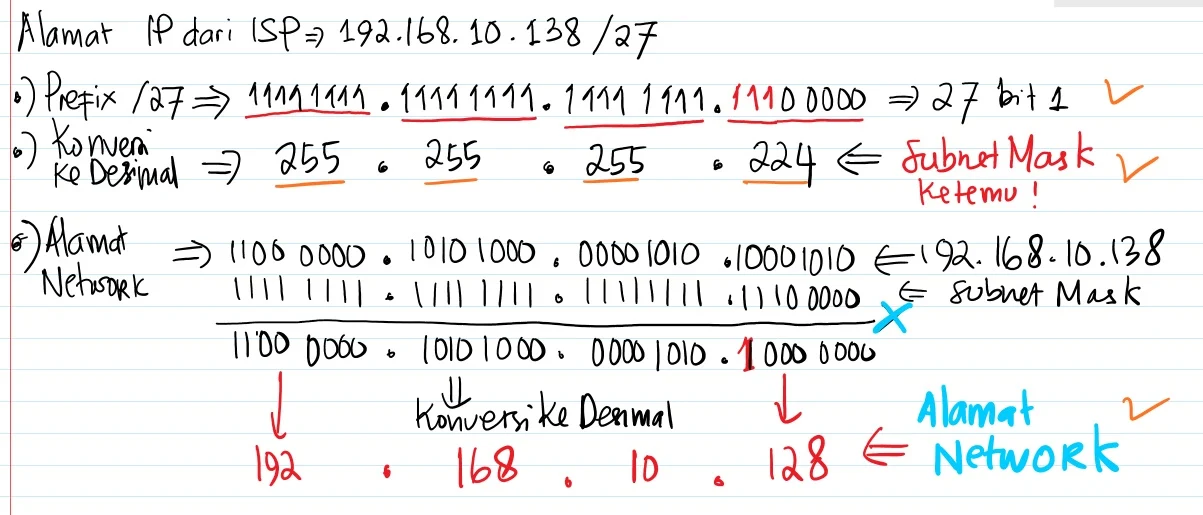 Alamat IP dari ISP ⇒ 192.168.10.138 /27
•) Prefix /27 ⇒ 11111111 . 11111111 . 1111 1111 . 11100000 ⇒ 27 bit 1 ✓
•) Konversi ke Desimal ⇒ 255 . 255 . 255 . 224 ⇐ Subnet Mask Ketemu! ✓
•) Alamat Network ⇒ 1100 0000 . 10101000 . 00001010 . 10001010 ⇐ 192.168.10.138
1111 1111 . 1111 1111 . 11111111 . 1110 0000 ⇐ Subnet Mask
×
1100 0000 . 1010 1000 . 0000 1010 . 1000 0000
↓ ⇓ ↓
Konversi ke Desimal
192 . 168 . 10 . 128 ⇐ Alamat Network ✓